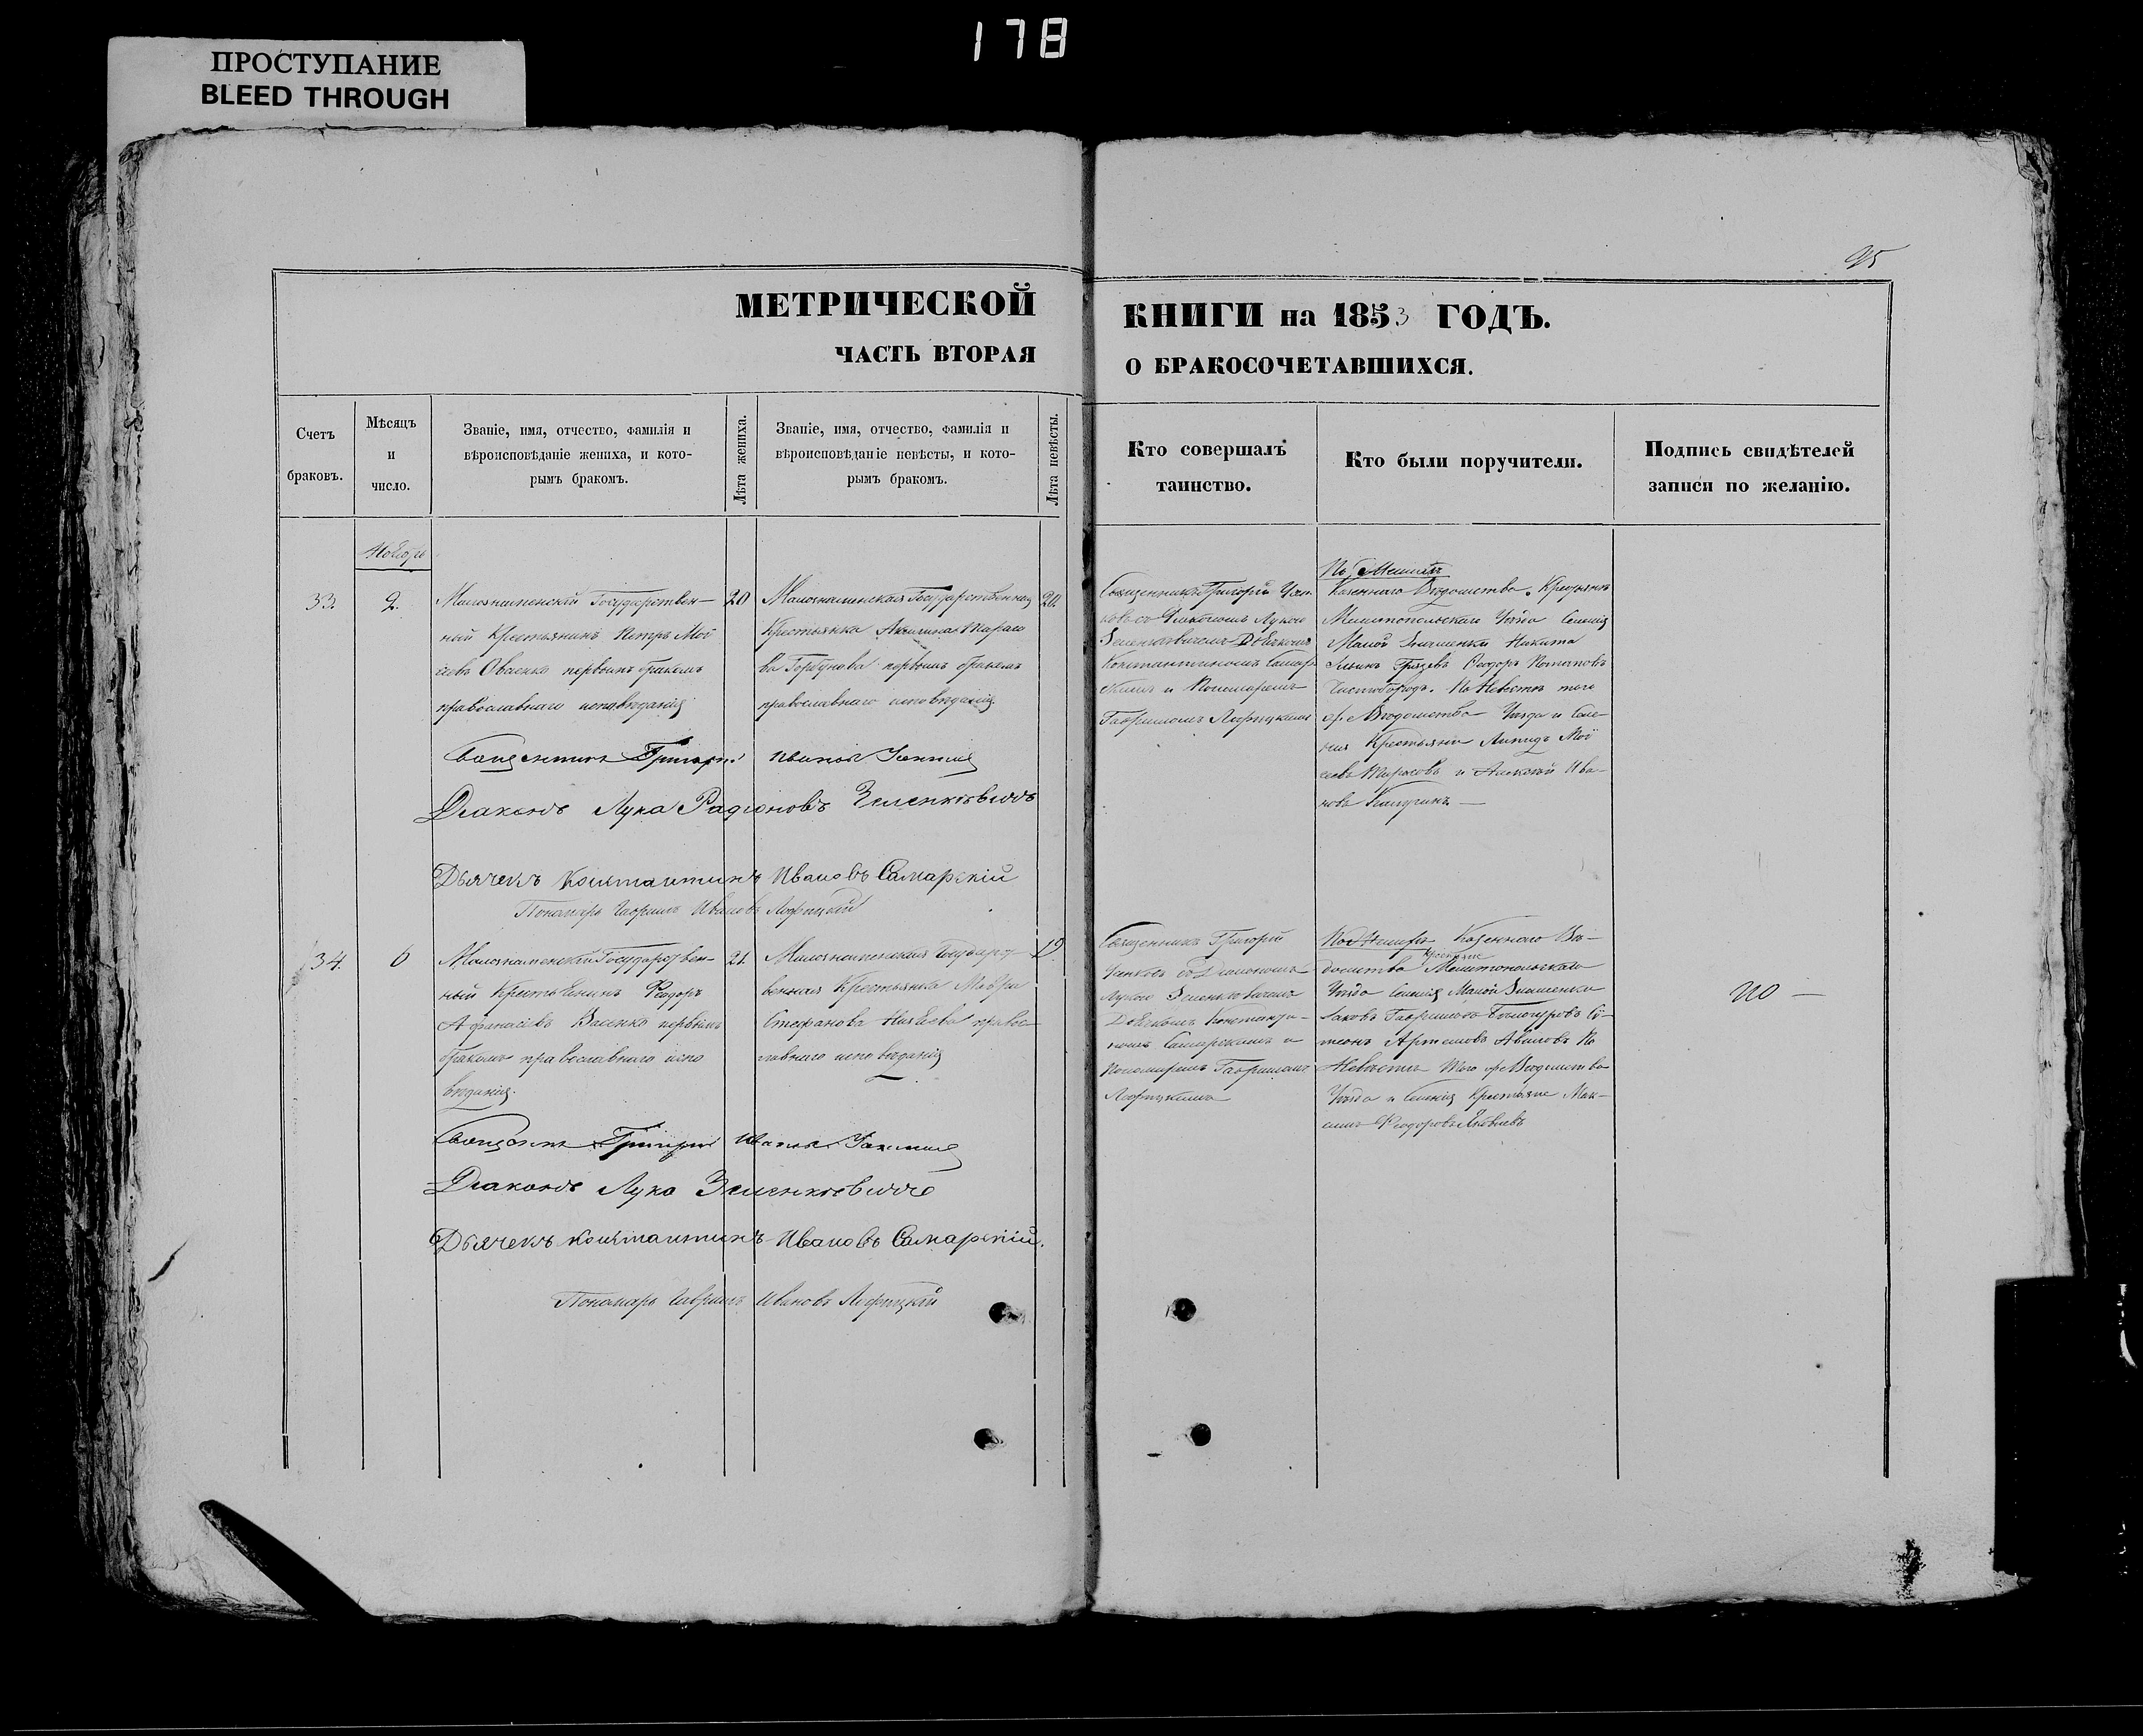 178
ПРОСТУПАНИЕ
BLEED THROUGH
95
МЕТРИЧЕСКОЙ
ЧАСТЬ ВТОРАЯ
КНИГИ на 1853 ГОДЪ.
О БРАКОСОЧЕТАВШИХСЯ.
Счетъ
браковъ.
Мѣсяцъ
и
число.
Званіе, имя, отчество, фамилія и
вѣроисповѣданіе жениха, и кото-
рымъ бракомъ.
Лѣта жениха.
Званіе, имя, отчество, фамилія и
вѣроисповѣданіе невѣсты, и кото-
рымъ бракомъ.
Лѣта невѣсты.
Кто совершалъ
таинство.
Кто были поручители.
Подпись свидѣтелей
записи по желанію.
Ноябрь
33.
2.
Малознаменскій Государствен-
ный Крестьянинъ Петръ Мой
сеевъ Овсенко первымъ бракомъ
православнаго исповѣданія
20
Малознаменская Государственная
Крестьянка Акилина Тарасо
ва Горбунова первымъ бракомъ
православнаго исповѣданія.
20.
Священникъ Григорій
съ Діакономъ Лукою
Зеленкевичемъ Дьячкомъ
Константиномъ Самар
скимъ и Пономаремъ
Гавріиломъ
По Женихѣ
Казеннаго Вѣдомства Крестьяне
Мелитопольскаго Уѣзда Селенія
Малой Знаменки Никита
Ильинъ Феодоръ Потаповъ
По Невѣстѣ того
жъ Вѣдомства Уѣзда и Селе-
нія Крестьяне Мой
сеевъ Тарасовъ и Алексѣй Ива-
новъ
Священникъ Григорій Ивановъ
Діаконъ Лука Радіоновъ Зеленкевичъ
Дьячекъ Константинъ Ивановъ Самарскій
Пономарь Гавріилъ Ивановъ
34.
6
Малознаменскій Государствен-
ный Крестьянинъ Феодоръ
Афанасіевъ Васенко первымъ
бракомъ православнаго испо
вѣданія.
21.
Малознаменская Государст
венная Крестьянка Мавра
Стефанова правос-
лавнаго исповѣданія
19.
Священникъ Григорій
съ Діакономъ
Лукою Зеленкевичемъ
Дьячкомъ Константи-
номъ Самарскимъ и
Пономаремъ Гавріиломъ
По Женихѣ Казеннаго Вѣ-
домства Крестьяне Мелитопольскаго
Уѣзда Селенія Малой Знаменки
Іаковъ Гавріиловъ Си-
меонъ Артемовъ По
Невѣстѣ того жъ Вѣдомства
Уѣзда и Селенія Крестьяне Мак-
симъ Феодоровъ
Священникъ Григорій Ивановъ
Діаконъ Лука Зеленкевичъ
Дьячекъ Константинъ Ивановъ Самарскій.
Пономарь Гавріилъ Ивановъ